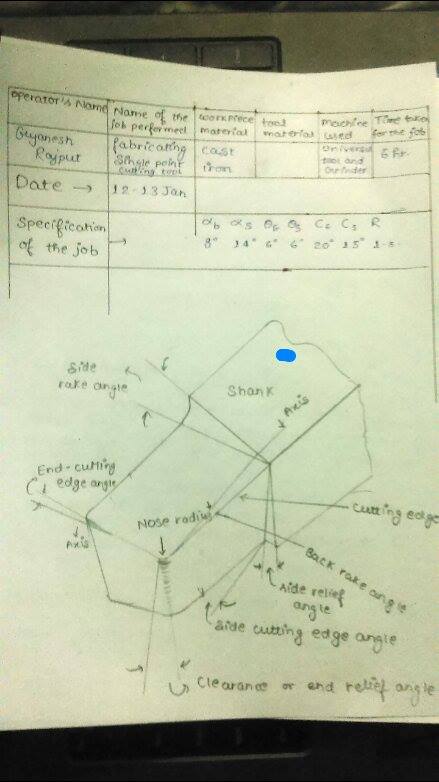 Operator's Name
Name of the
job performed
workpiece
material
tool
material
machine
used
Time taken
for the job
Gyanesh
Rajput
fabricating
Single point
cutting tool
cast
iron
Universal
tool and
Grinder
6 hr.
Date →
12-13 Jan
Specification
of the job
→
αb αs θe θs Ce Cs R
8° 14° 6° 6° 20° 15°
Side
rake angle
Shank
Axis
End-cutting
edge angle
Axis
Nose radius
Cutting edge
Back rake angle
Aide relief
angle
Side cutting edge angle
Clearance or end relief angle